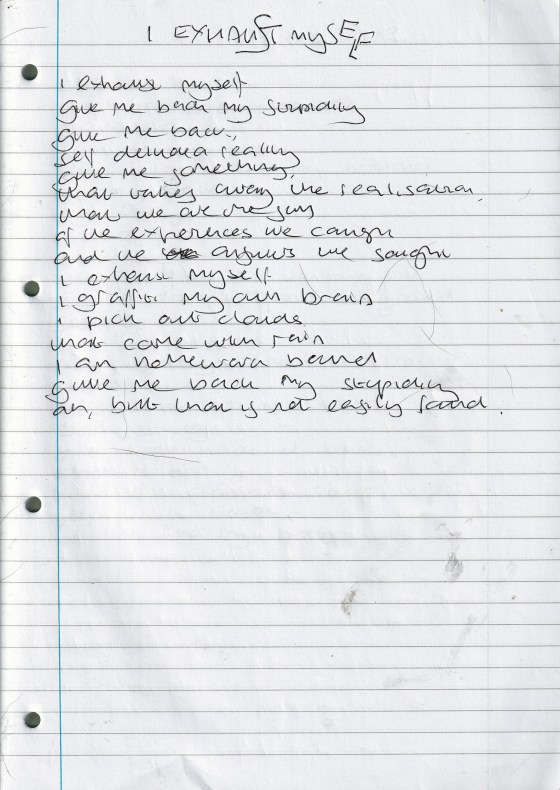 I EXHAUST MYSELF
I exhaust myself
give me back my stupidity
give me back,
self reality
give me something,
that takes away the realisation
that we are the sum
of the experiences we caught
and the answers we sought
I exhaust myself
I graffiti my own brain
I pick out clouds
that come with rain
I am homeward bound
give me back my stupidity
ah, but that is not easily found.